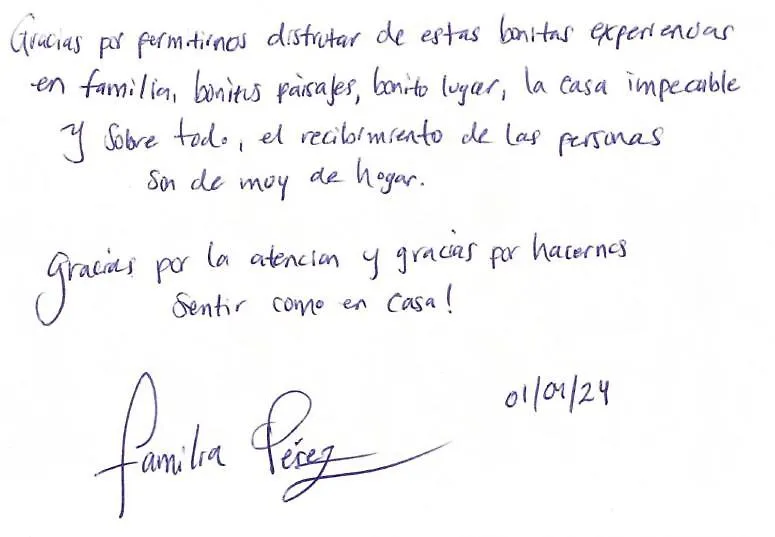 Gracias por permitirnos disfrutar de estas bonitas experiencias
en familia, bonitos paisajes, bonito lugar, la casa impecable
y sobre todo, el recibimiento de las personas
son de muy de hogar.
Gracias por la atencion y gracias por hacernos
sentir como en casa!
01/01/24
Familia Pérez